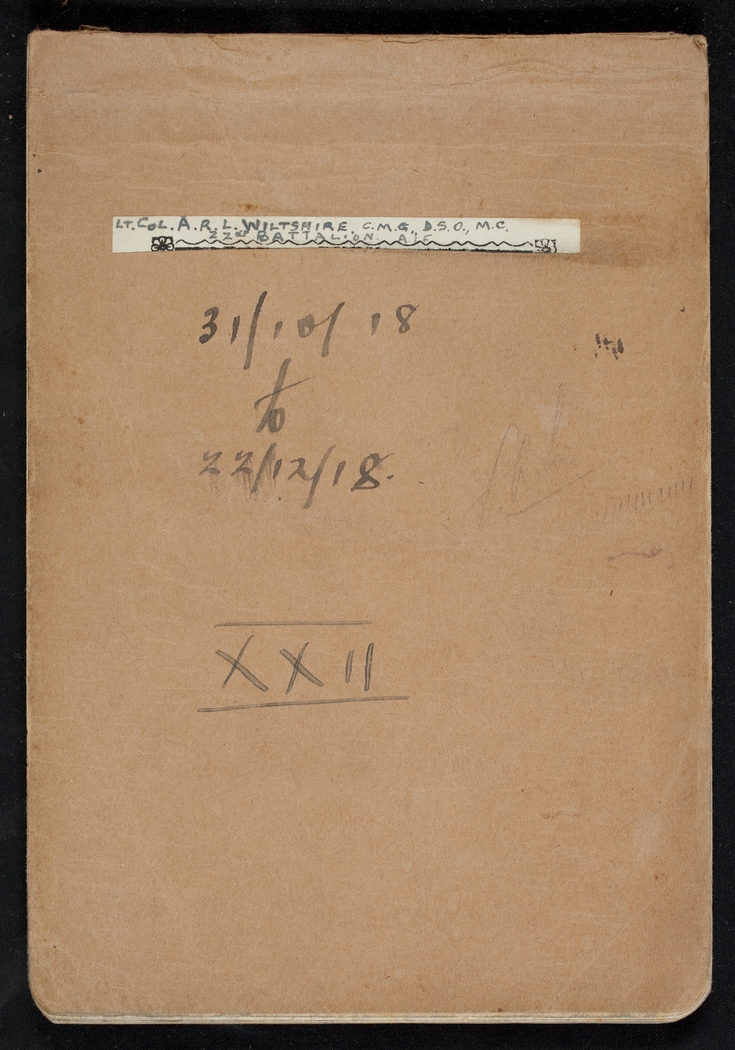 LT. COL. A. R. L. WILTSHIRE. C.M.G., D.S.O., M.C.
22nd BATTALION AIF
31/10/18
to
22/12/18.
XXII